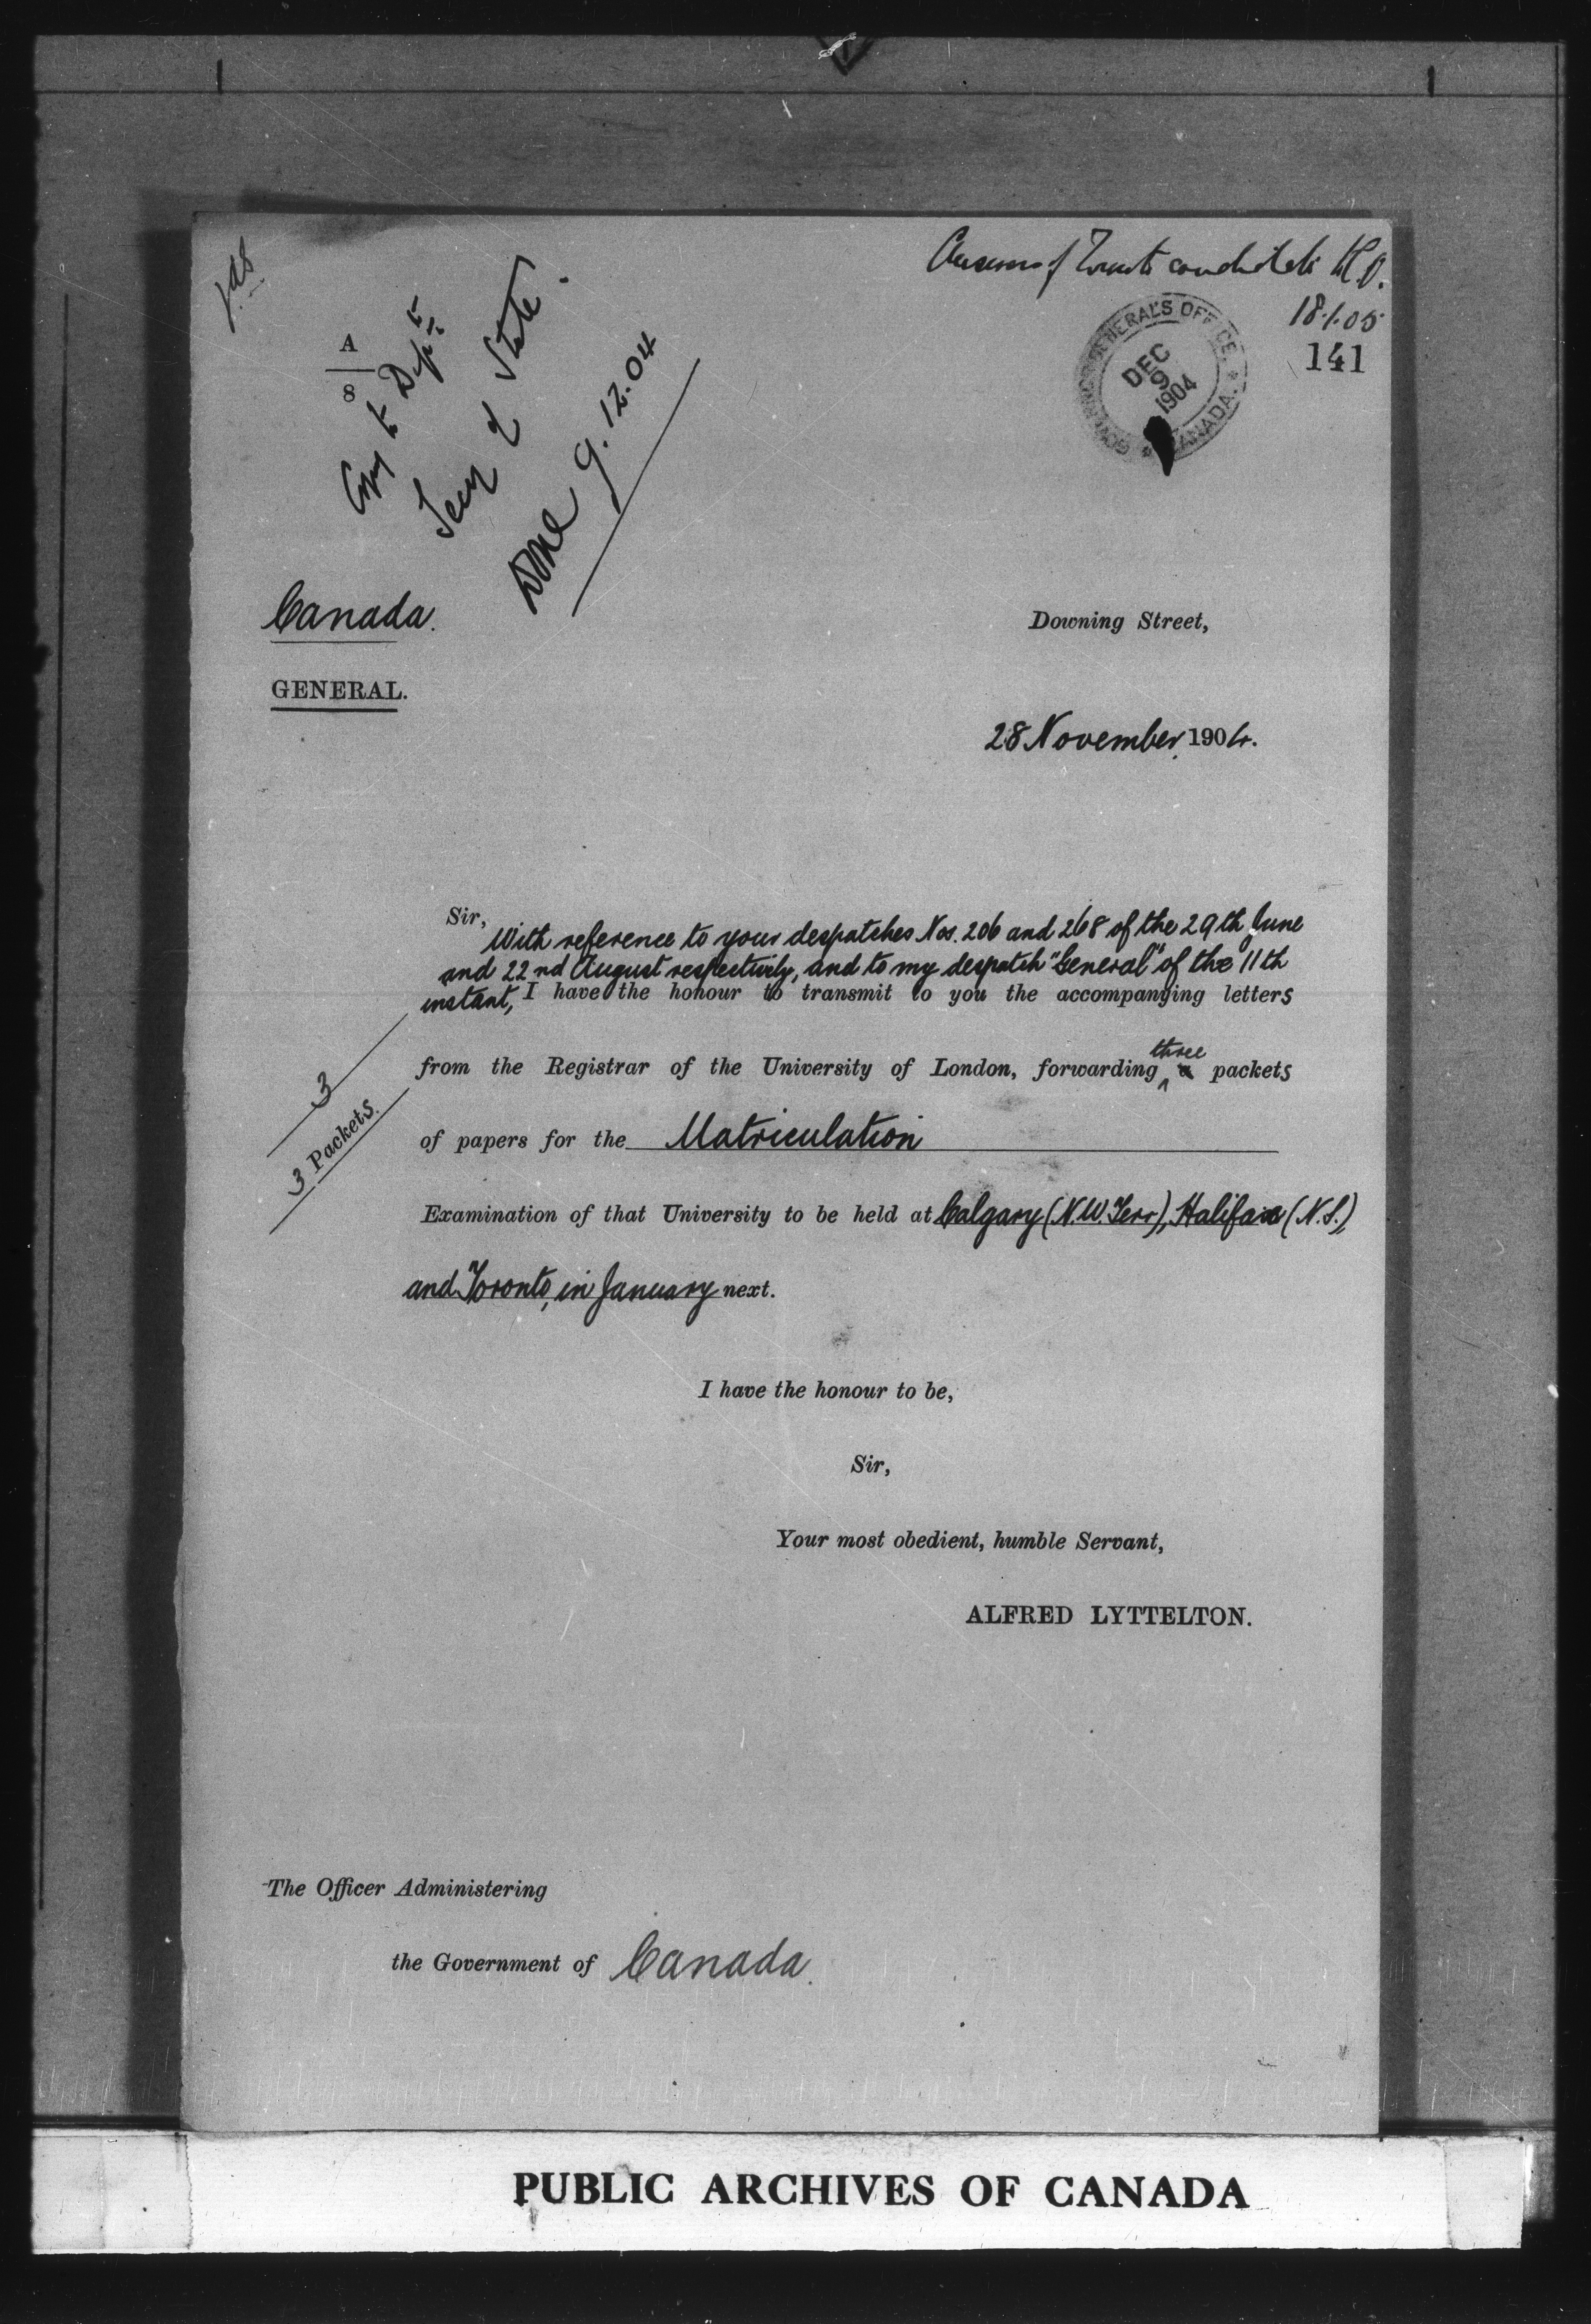 candidate H.O.
18.1.05
141
GOVERNOR GENERAL'S OFFICE
DEC
9
1904
* CANADA. *
A
8
Copy to Dept
Secy of State.
Done 9.12.04
Canada.
GENERAL.
Downing Street,
28 November, 1904.
Sir,
With reference to your despatches Nos. 206 and 268 of the 29th June
and 22nd August respectively, and to my despatch "General" of the 11th
instant, I have the honour to transmit to you the accompanying letters
three
from the Registrar of the University of London, forwarding ^ a packets
3
3 Packets.
of papers for the Matriculation
Examination of that University to be held at Calgary (N.W. Terr), Halifax (N.S.),
and Toronto, in January next.
I have the honour to be,
Sir,
Your most obedient, humble Servant,
ALFRED LYTTELTON.
The Officer Administering
the Government of Canada.
PUBLIC ARCHIVES OF CANADA